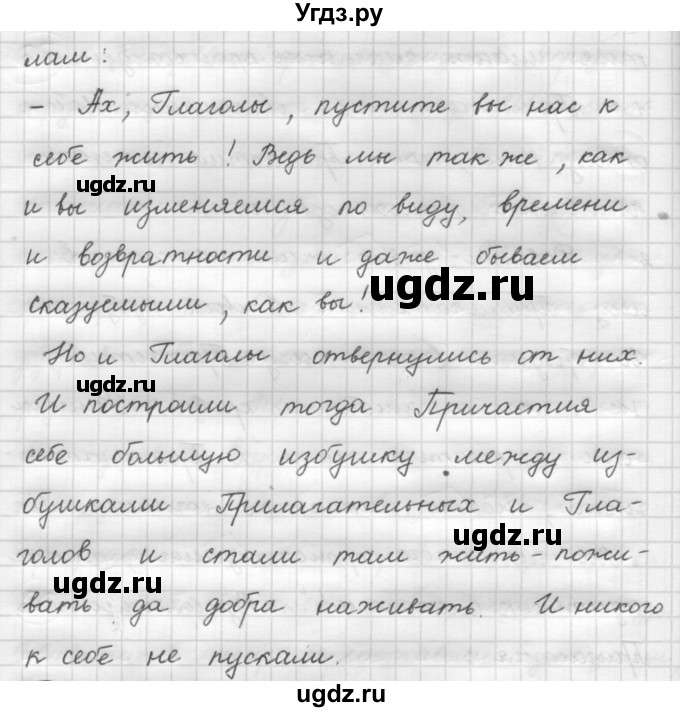 Угдз.ру
лам:
- Ах, Глаголы, пустите вы нас к
себе жить! Ведь мы так же, как
ugdz.ru
и вы изменяемся по виду, времени
и возвратности и даже бываем
ugdz.ru
сказуемыми, как вы!
Но и Глаголы отвернулись от них.
ugdz.ru
И построили тогда Причастия
себе большую избушку между из-
бушками Прилагательных и Гла-
ugdz.ru
голов и стали там жить-пожи-
ugdz.ru
вать да добра наживать. И никого
к себе не пускали.
ugdz.ru